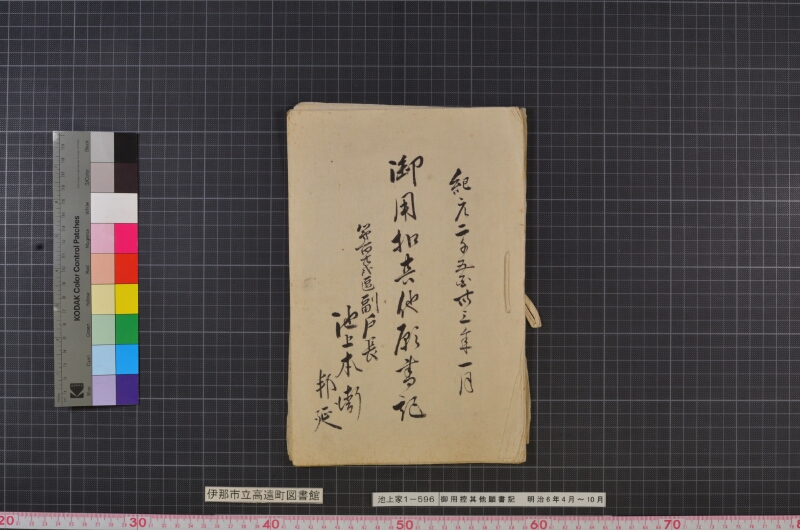 紀元二千五百卅三年一月
御用扣其他願書記
副戸長
池上本衛
邦延
KODAK Color Control Patches
伊那市立高遠町図書館
池上家1-596 御用控其他願書記 明治6年4月～10月
20 30 40 50 60 70